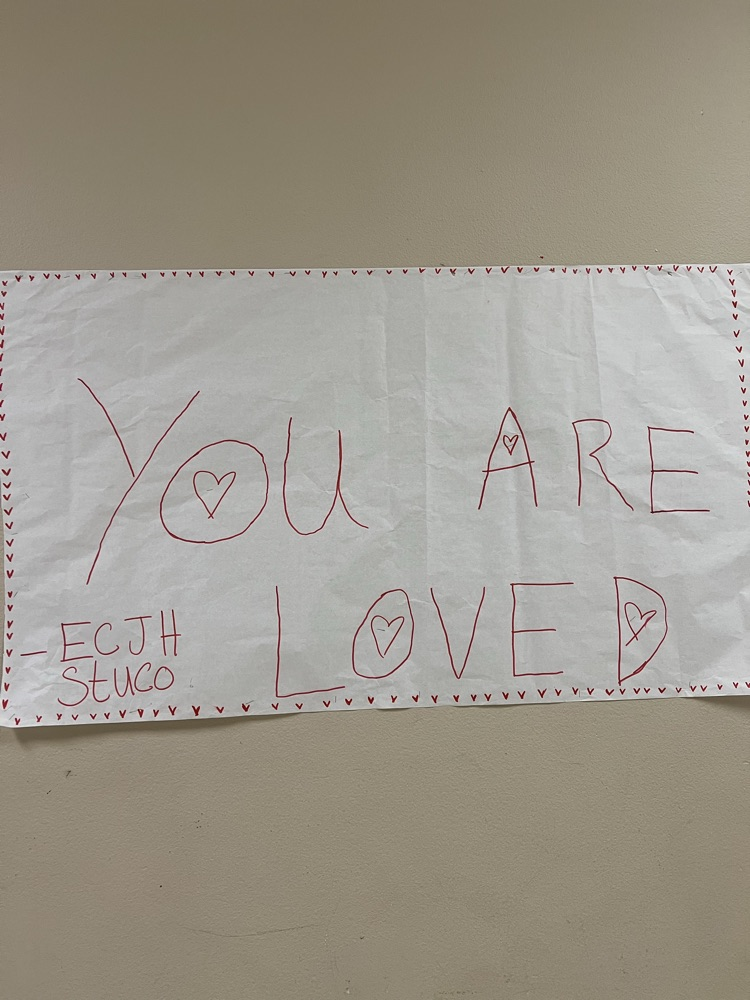 YOU ARE
LOVED
- ECJH
Stuco